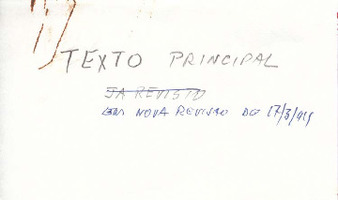 TEXTO PRINCIPAL
JA REVISTO
EM NOVA REVISÃO DE 17/3/